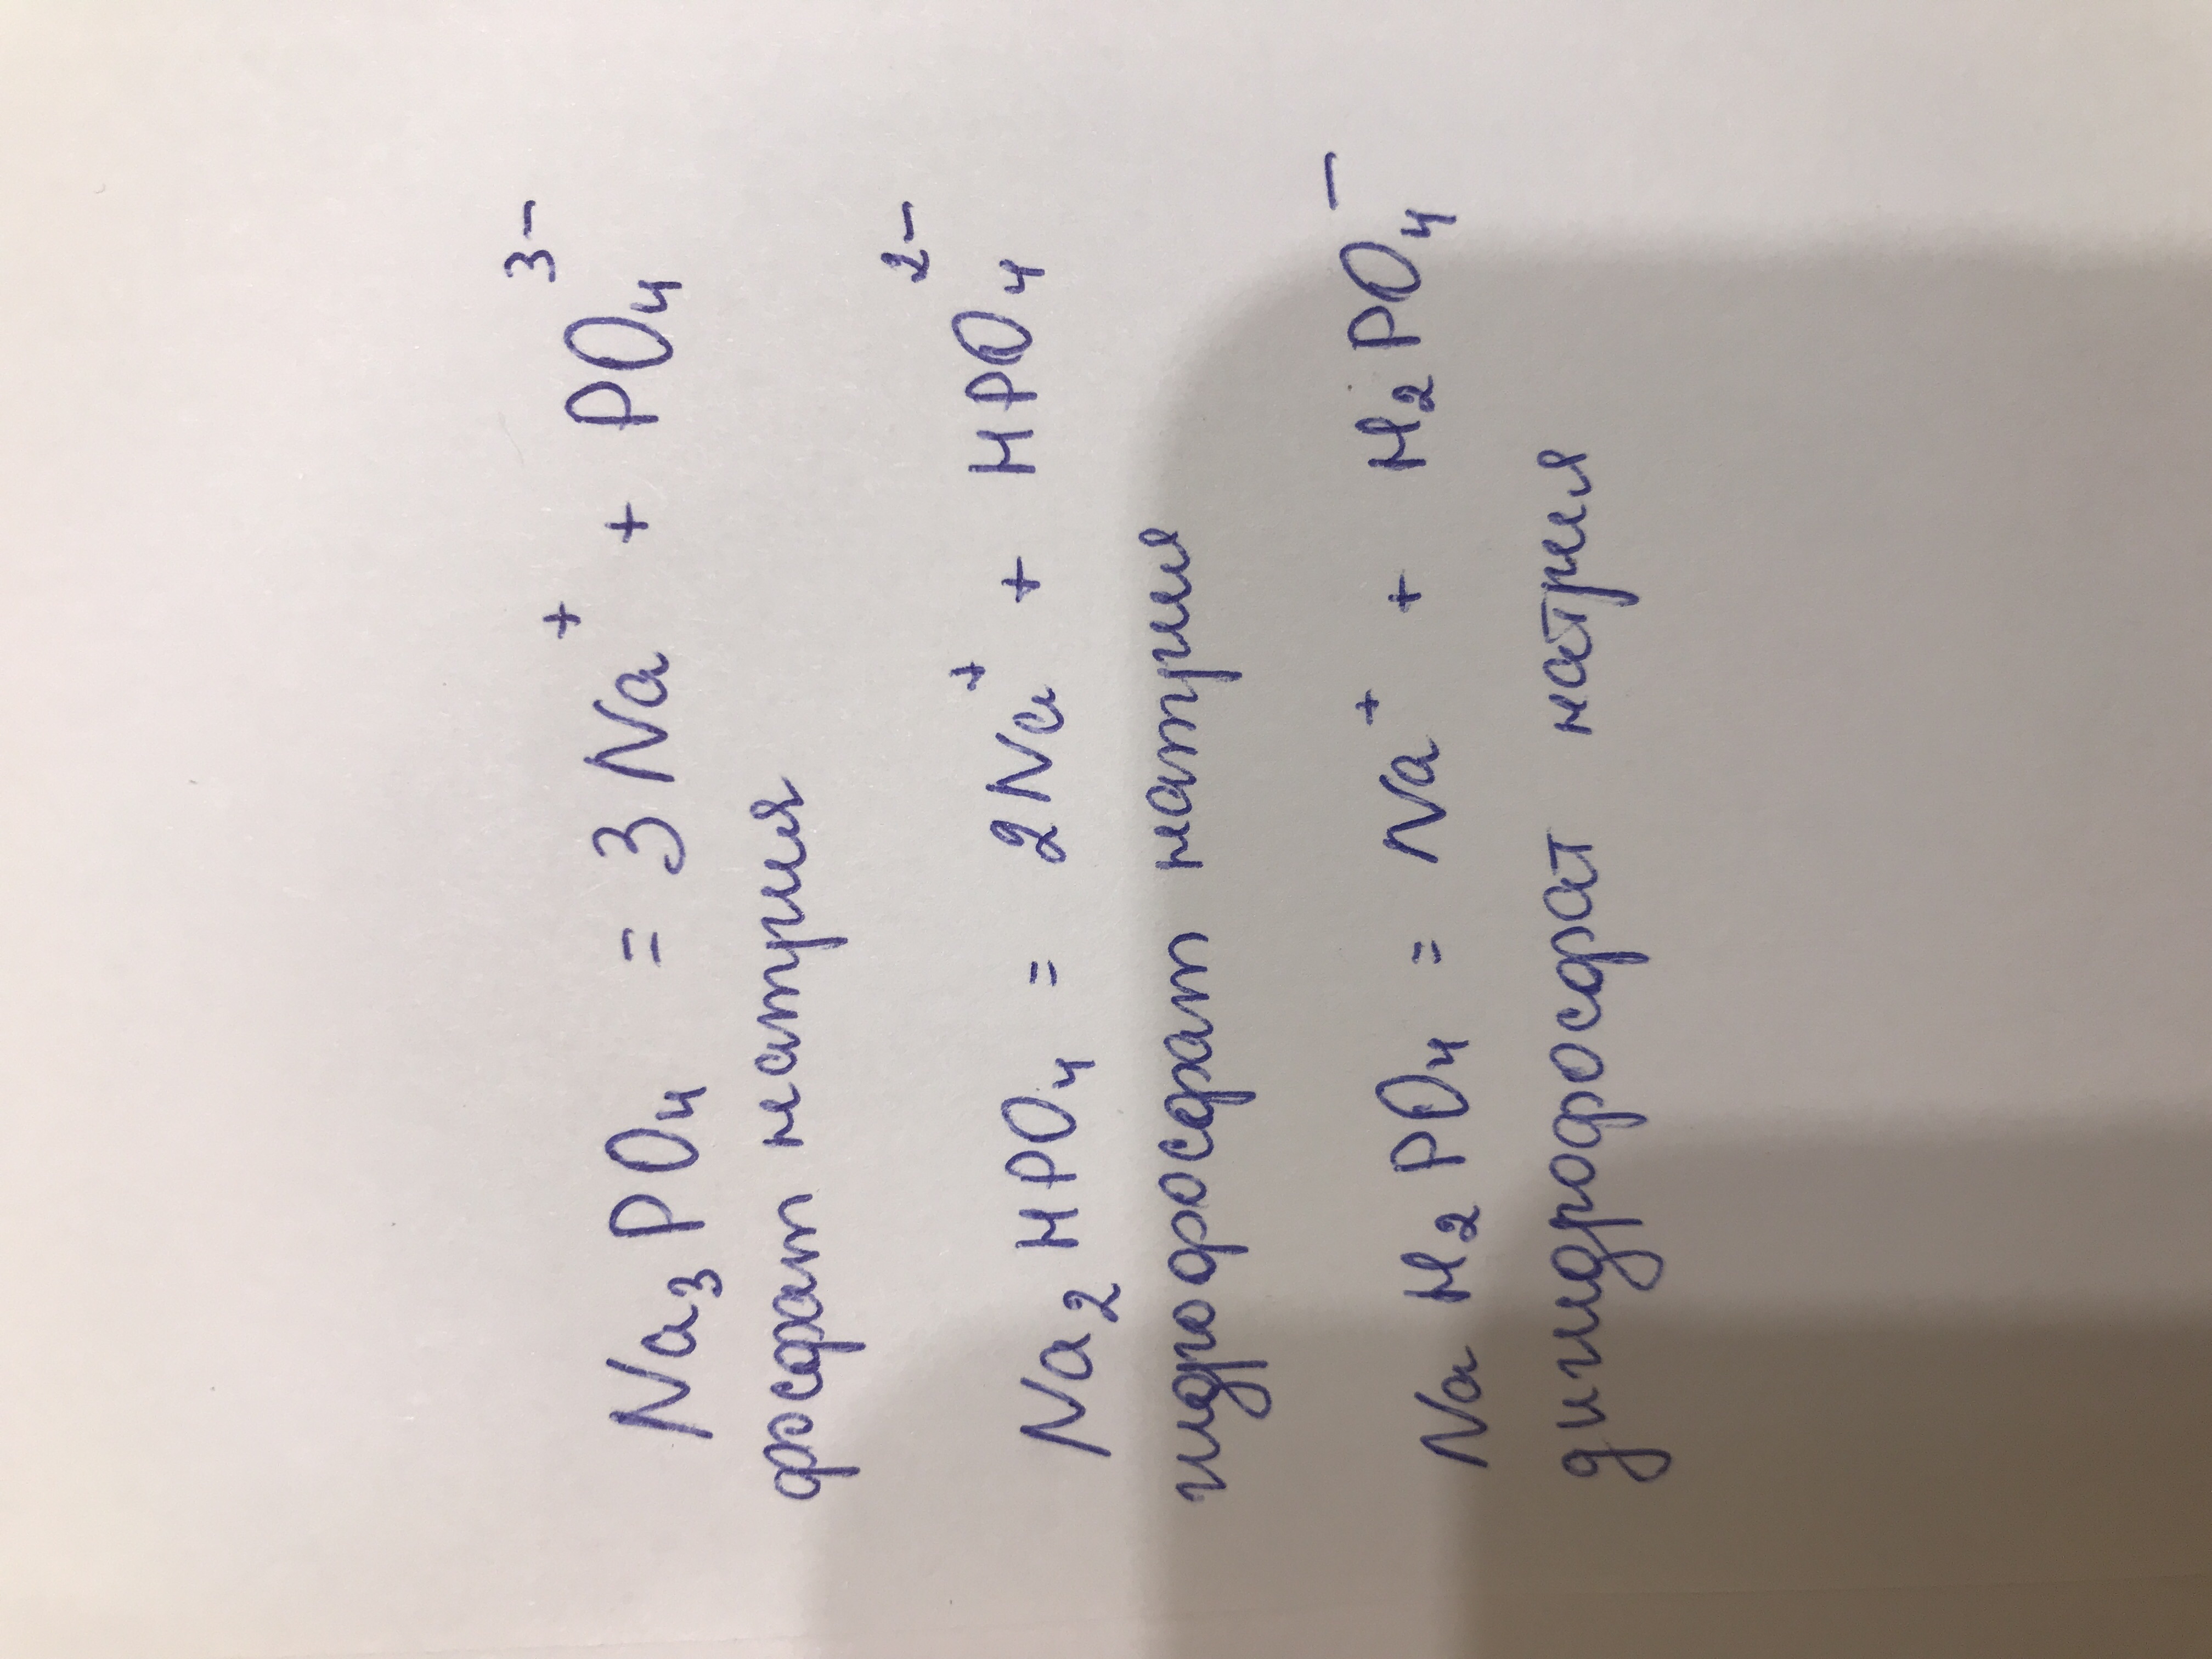 Na₃PO₄ = 3Na⁺ + PO₄³⁻
фосфат натрия
Na₂HPO₄ = 2Na⁺ + HPO₄²⁻
гидрофосфат натрия
NaH₂PO₄ = Na⁺ + H₂PO₄⁻
дигидрофосфат натрия